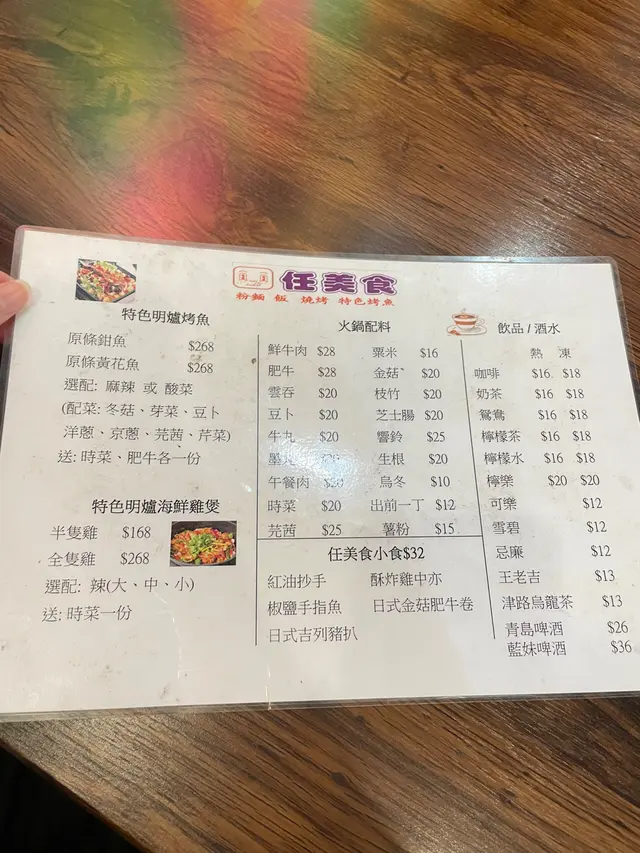 任美食
粉麵 飯 燒烤 特色烤魚
特色明爐烤魚
原條鉗魚 $268
原條黃花魚 $268
選配: 麻辣 或 酸菜
(配菜: 冬菇、芽菜、豆卜
洋蔥、京蔥、芫茜、芹菜)
送: 時菜、肥牛各一份
特色明爐海鮮雞煲
半隻雞 $168
全隻雞 $268
選配: 辣(大、中、小)
送: 時菜一份
火鍋配料
鮮牛肉 $28 粟米 $16
肥牛 $28 金菇 $20
雲吞 $20 枝竹 $20
豆卜 $20 芝士腸 $20
牛丸 $20 響鈴 $25
墨丸 生根 $20
午餐肉 $20 烏冬 $10
時菜 $20 出前一丁 $12
芫茜 $25 薯粉 $15
任美食小食$32
紅油抄手 酥炸雞中亦
椒鹽手指魚 日式金菇肥牛卷
日式吉列豬扒
飲品 / 酒水
熱 凍
咖啡 $16 $18
奶茶 $16 $18
鴛鴦 $16 $18
檸檬茶 $16 $18
檸檬水 $16 $18
檸樂 $20 $20
可樂 $12
雪碧 $12
忌廉 $12
王老吉 $13
津路烏龍茶 $13
青島啤酒 $26
藍妹啤酒 $36